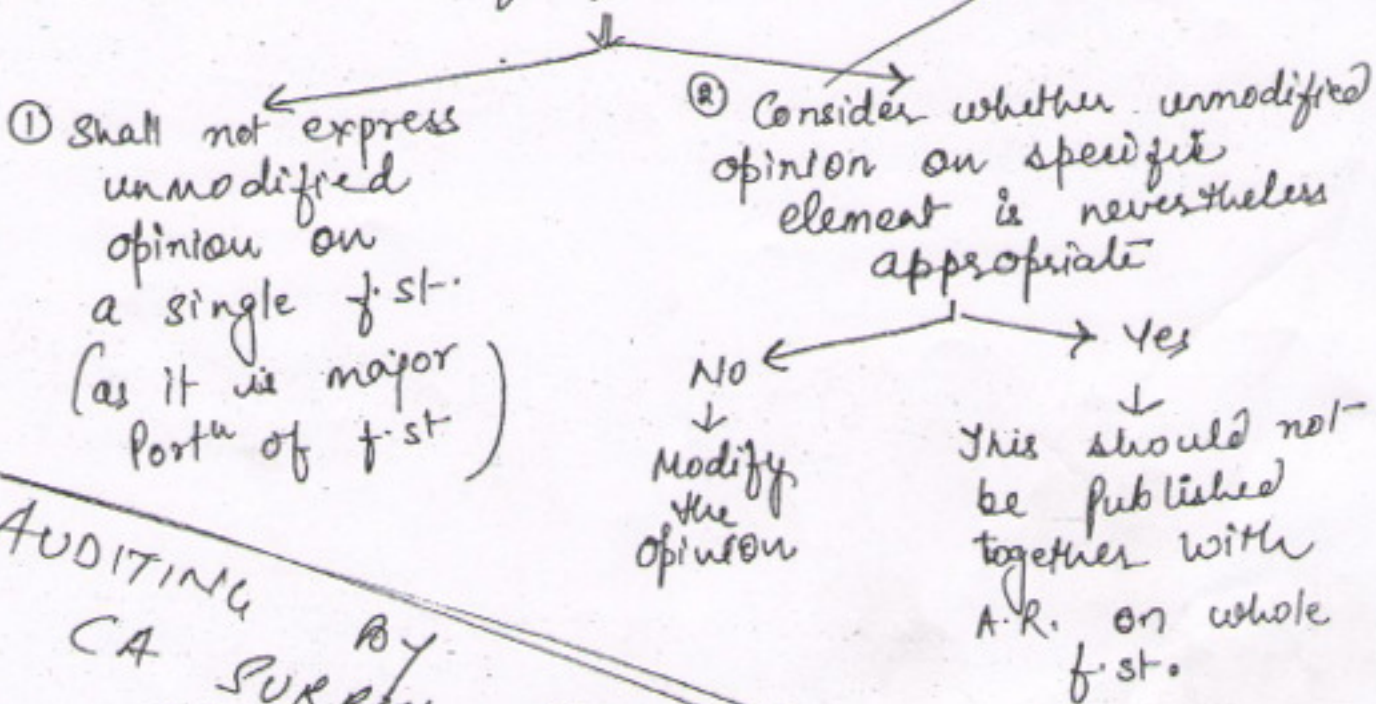 ① Shall not express
unmodified
opinion on
a single f.st.
(as it is major
Portn of f.st)
② Consider whether unmodified
opinion on specific
element is nevertheless
appropriate
No
Modify
the
opinion
Yes
This should not
be Published
together with
A.R. on whole
f.st.
AUDITING BY
CA